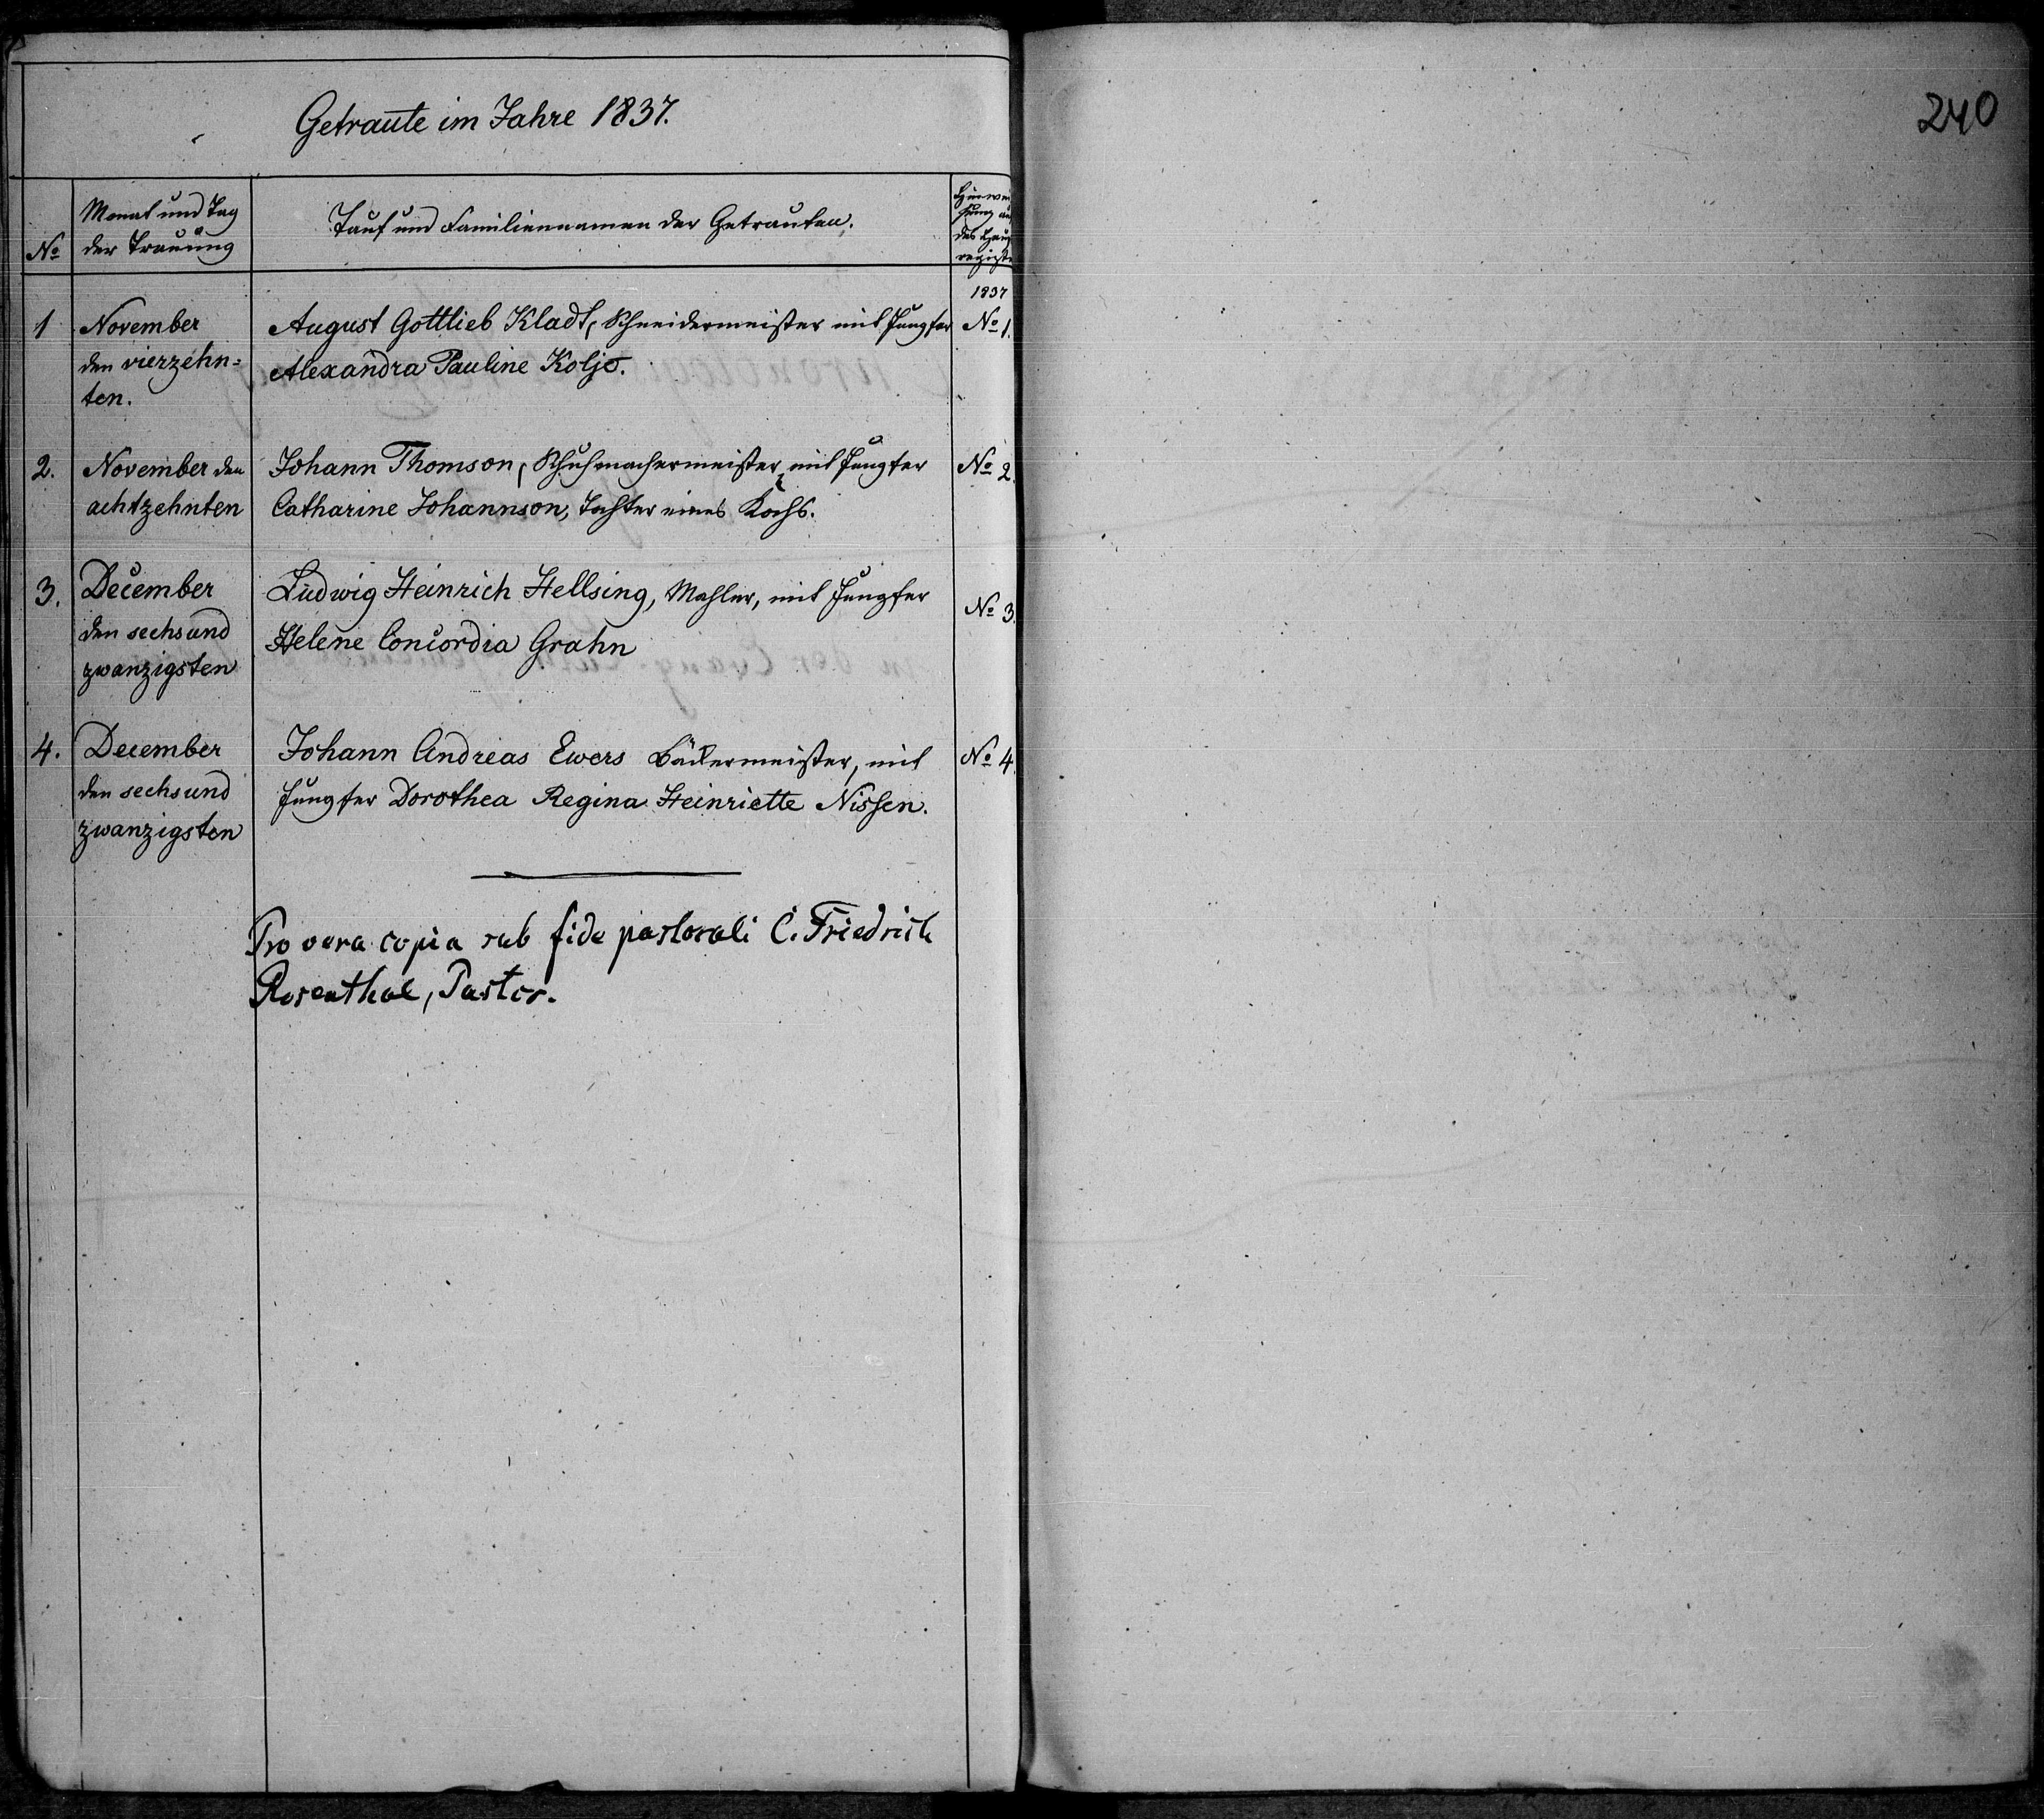 Getraute im Jahre 1837.
240
№
Monat und Tag
der Trauung
Tauf und Familiennamen der Getrauten.
Hinwei
sung auf
das Haupt
register
1837
1
November
den vierzehn=
ten.
August Gottlieb Kladt, Schneidermeister mit Jungfer
Alexandra Pauline Koljo.
№ 1.
2.
November den
achtzehnten
Johann Thomson, Schuhmachermeister, mit Jungfer
Catharine Johannson, Tochter eines Kochs.
№ 2.
3.
December
den sechsund
zwanzigsten
Ludwig Heinrich Hellsing, Mahler, mit Jungfer
Helene Concordia Grahn
№ 3.
4.
December
den sechsund
zwanzigsten
Johann Andreas Ewers Bäckermeister, mit
Jungfer Dorothea Regina Heinriette Nissen.
№ 4.
Pro vera copia sub fide pastorali C. Friedrich
Rosenthal, Pastor.